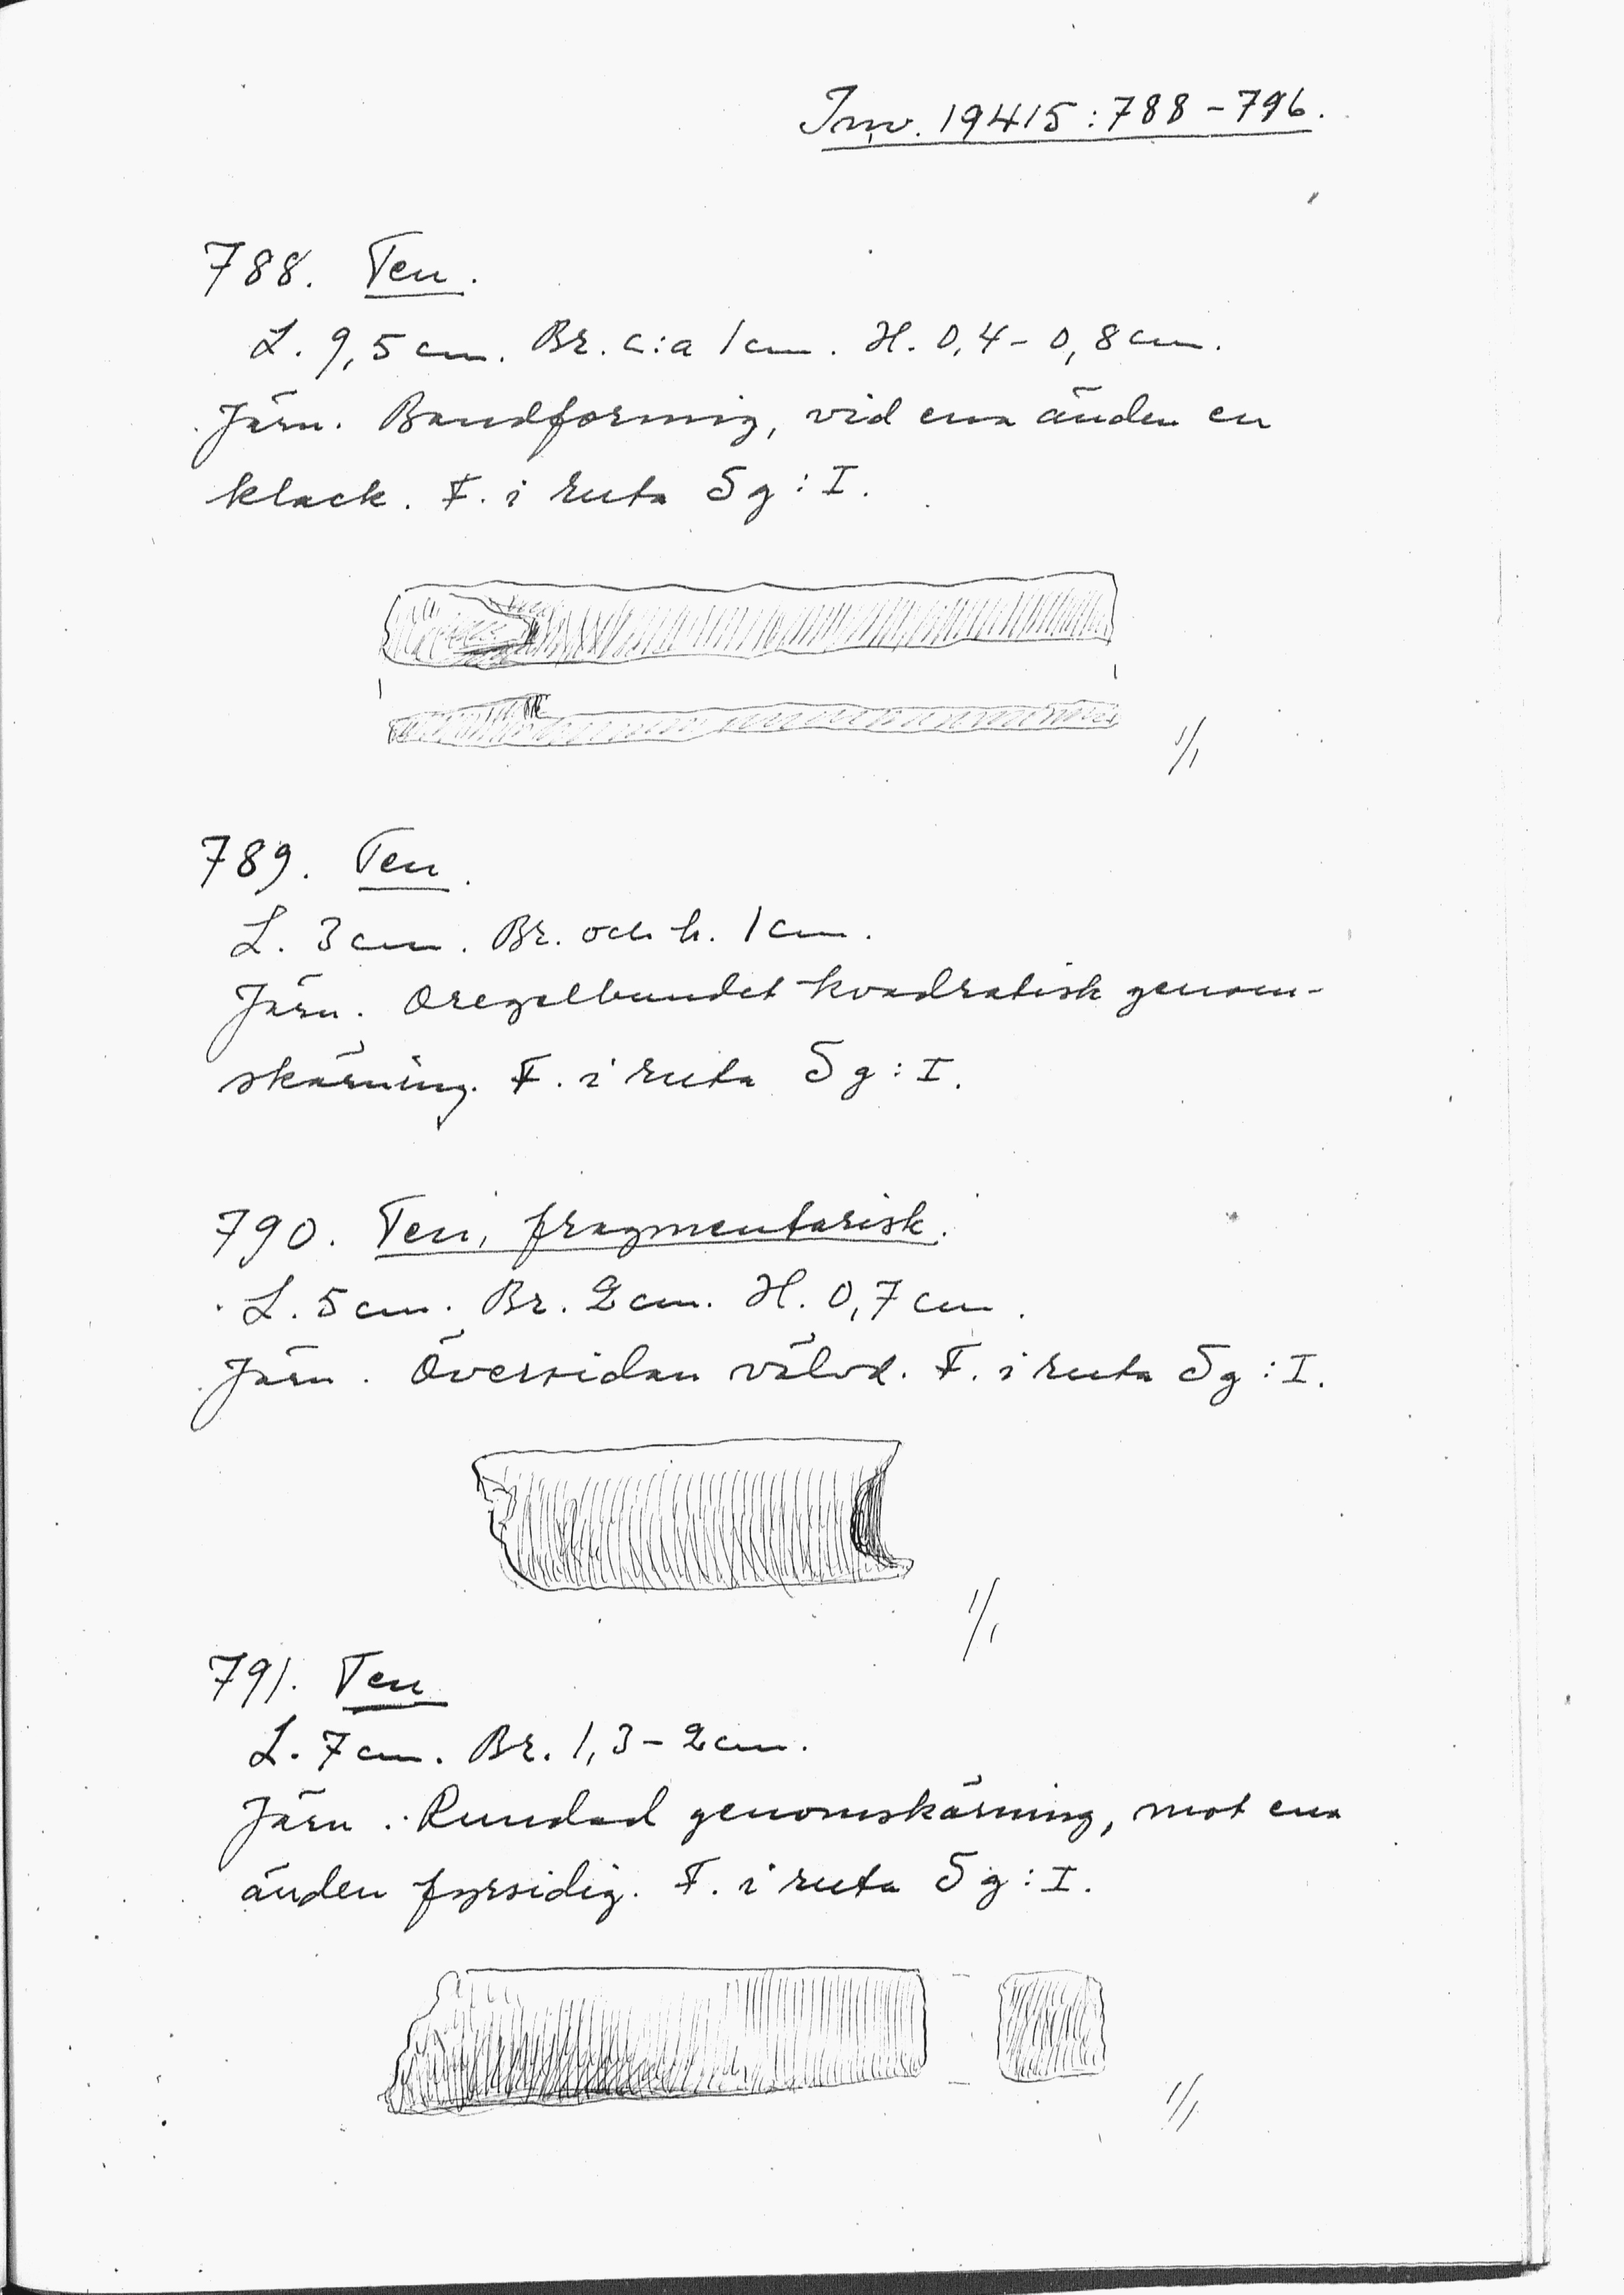 Inv. 19415:788-796.
788. Ten.
L. 9,5 cm. Br. c:a 1 cm. H. 0,4-0,8 cm.
Järn. Bandformig, vid ena änden en
klack. F. i ruta 5g:I.
1/1
789. Ten.
L. 3 cm. Br. och h. 1 cm.
Järn. Oregelbundet kvadratisk genom-
skärning. F. i ruta 5g:I.
790. Ten, fragmentarisk.
L. 5 cm. Br. 2 cm. H. 0,7 cm.
Järn. Översidan välvd. F. i ruta 5g:I.
1/1
791. Ten
L. 7 cm. Br. 1,3-2 cm.
Järn. Rundad genomskärning, mot ena
änden fyrsidig. F. i ruta 5g:I.
1/1